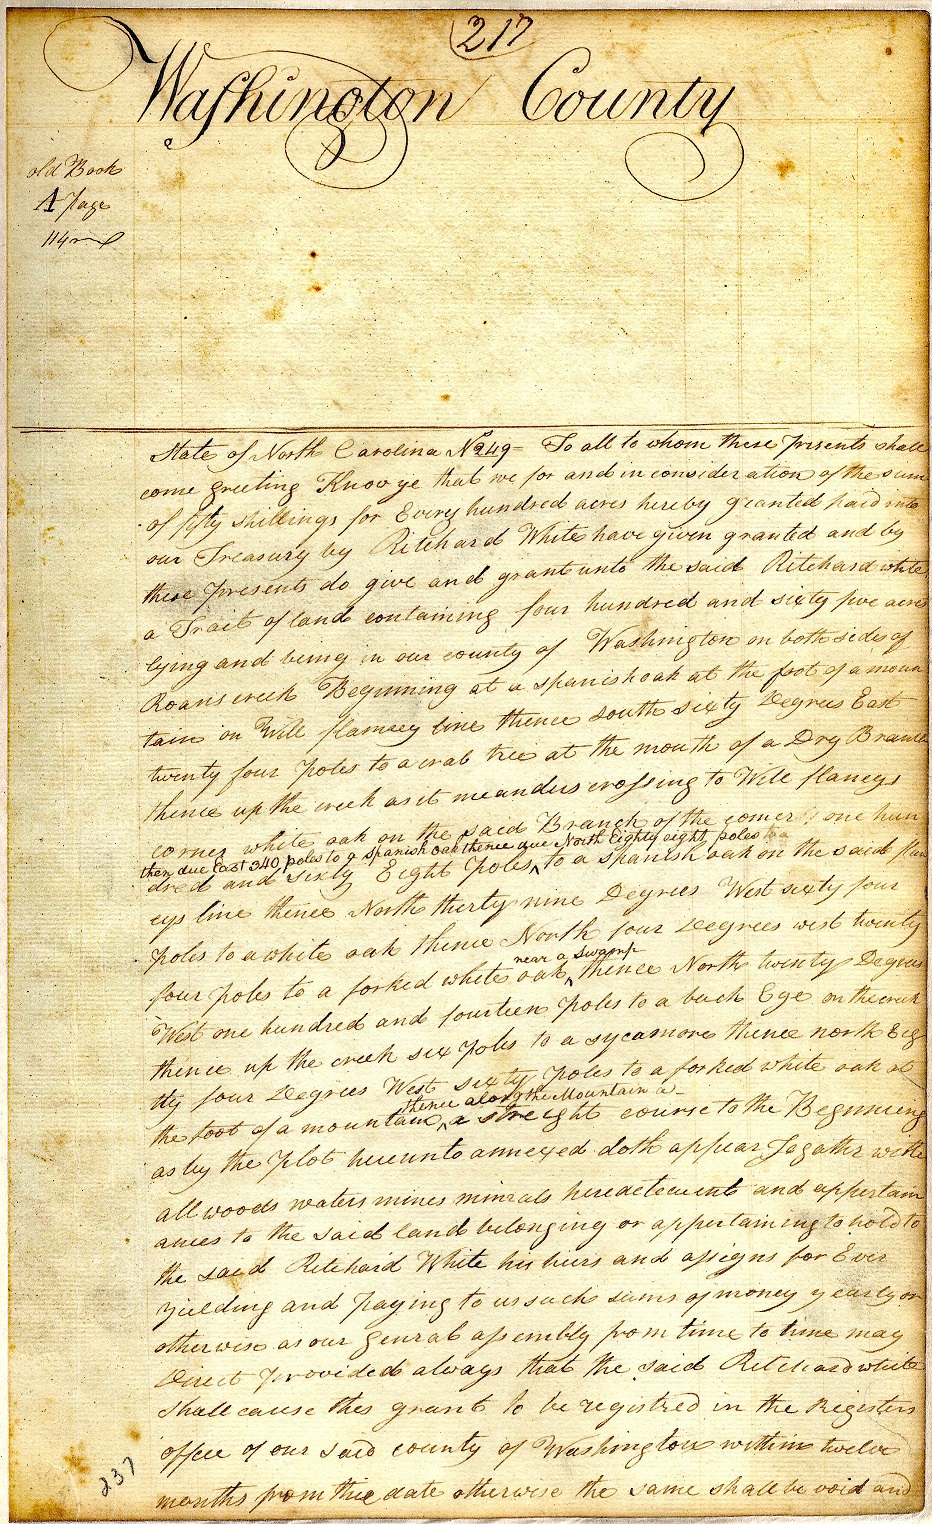 217
Washington County
old Book
A Page
114
State of North Carolina No 249 = To all to whom these presents shall
come greeting Know ye that we for and in consideration of the sum
of fifty shillings for Every hundred acres hereby granted paid into
our Treasury by Ritchard White have given granted and by
these presents do give and grant unto the said Ritchard white
a Tract of land containing four hundred and sixty five acres
lying and being in our county of Washington on both sides of
Roans creek Beginning at a spanish oak at the foot of a moun
tain on Will flamsey line thence south sixty Degrees East
twenty four poles to a crab tree at the mouth of a Dry Branch
thence up the creek as it meanders crossing to Will flaneys
corner white oak on the said Branch of the corner one hun
then due East 340 poles to a spanish oak thence due North Eighty eight poles to a
dred and sixty Eight poles ^ to a spanish oak on the said flan
eys line thence North thirty nine Degrees West sixty four
poles to a white oak thence North four Degrees west twenty
near a Swamp
four poles to a forked white oak ^ thence North twenty Degrees
West one hundred and fourteen poles to a buck Eye on the creek
thence up the creek six poles to a sycamore thence north Eig
tty four Degrees West sixty poles to a forked white oak at
thence along the Mountain a
the foot of a mountain ^ a streight course to the Beginning
as by the plot hereunto annexed doth appear Togather with
all woods waters mines minrals heredetements and appertain
ances to the said land belonging or appertaining to hold to
the said Ritchard White his heirs and assigns for Ever
yielding and paying to us such sums of money yearly or
otherwise as our genral assembly from time to time may
Direct provided always that the said Ritchard white
shall cause this grant to be registred in the Registers
office of our said county of Washington within twelve
months from the date otherwise the same shall be void and
237